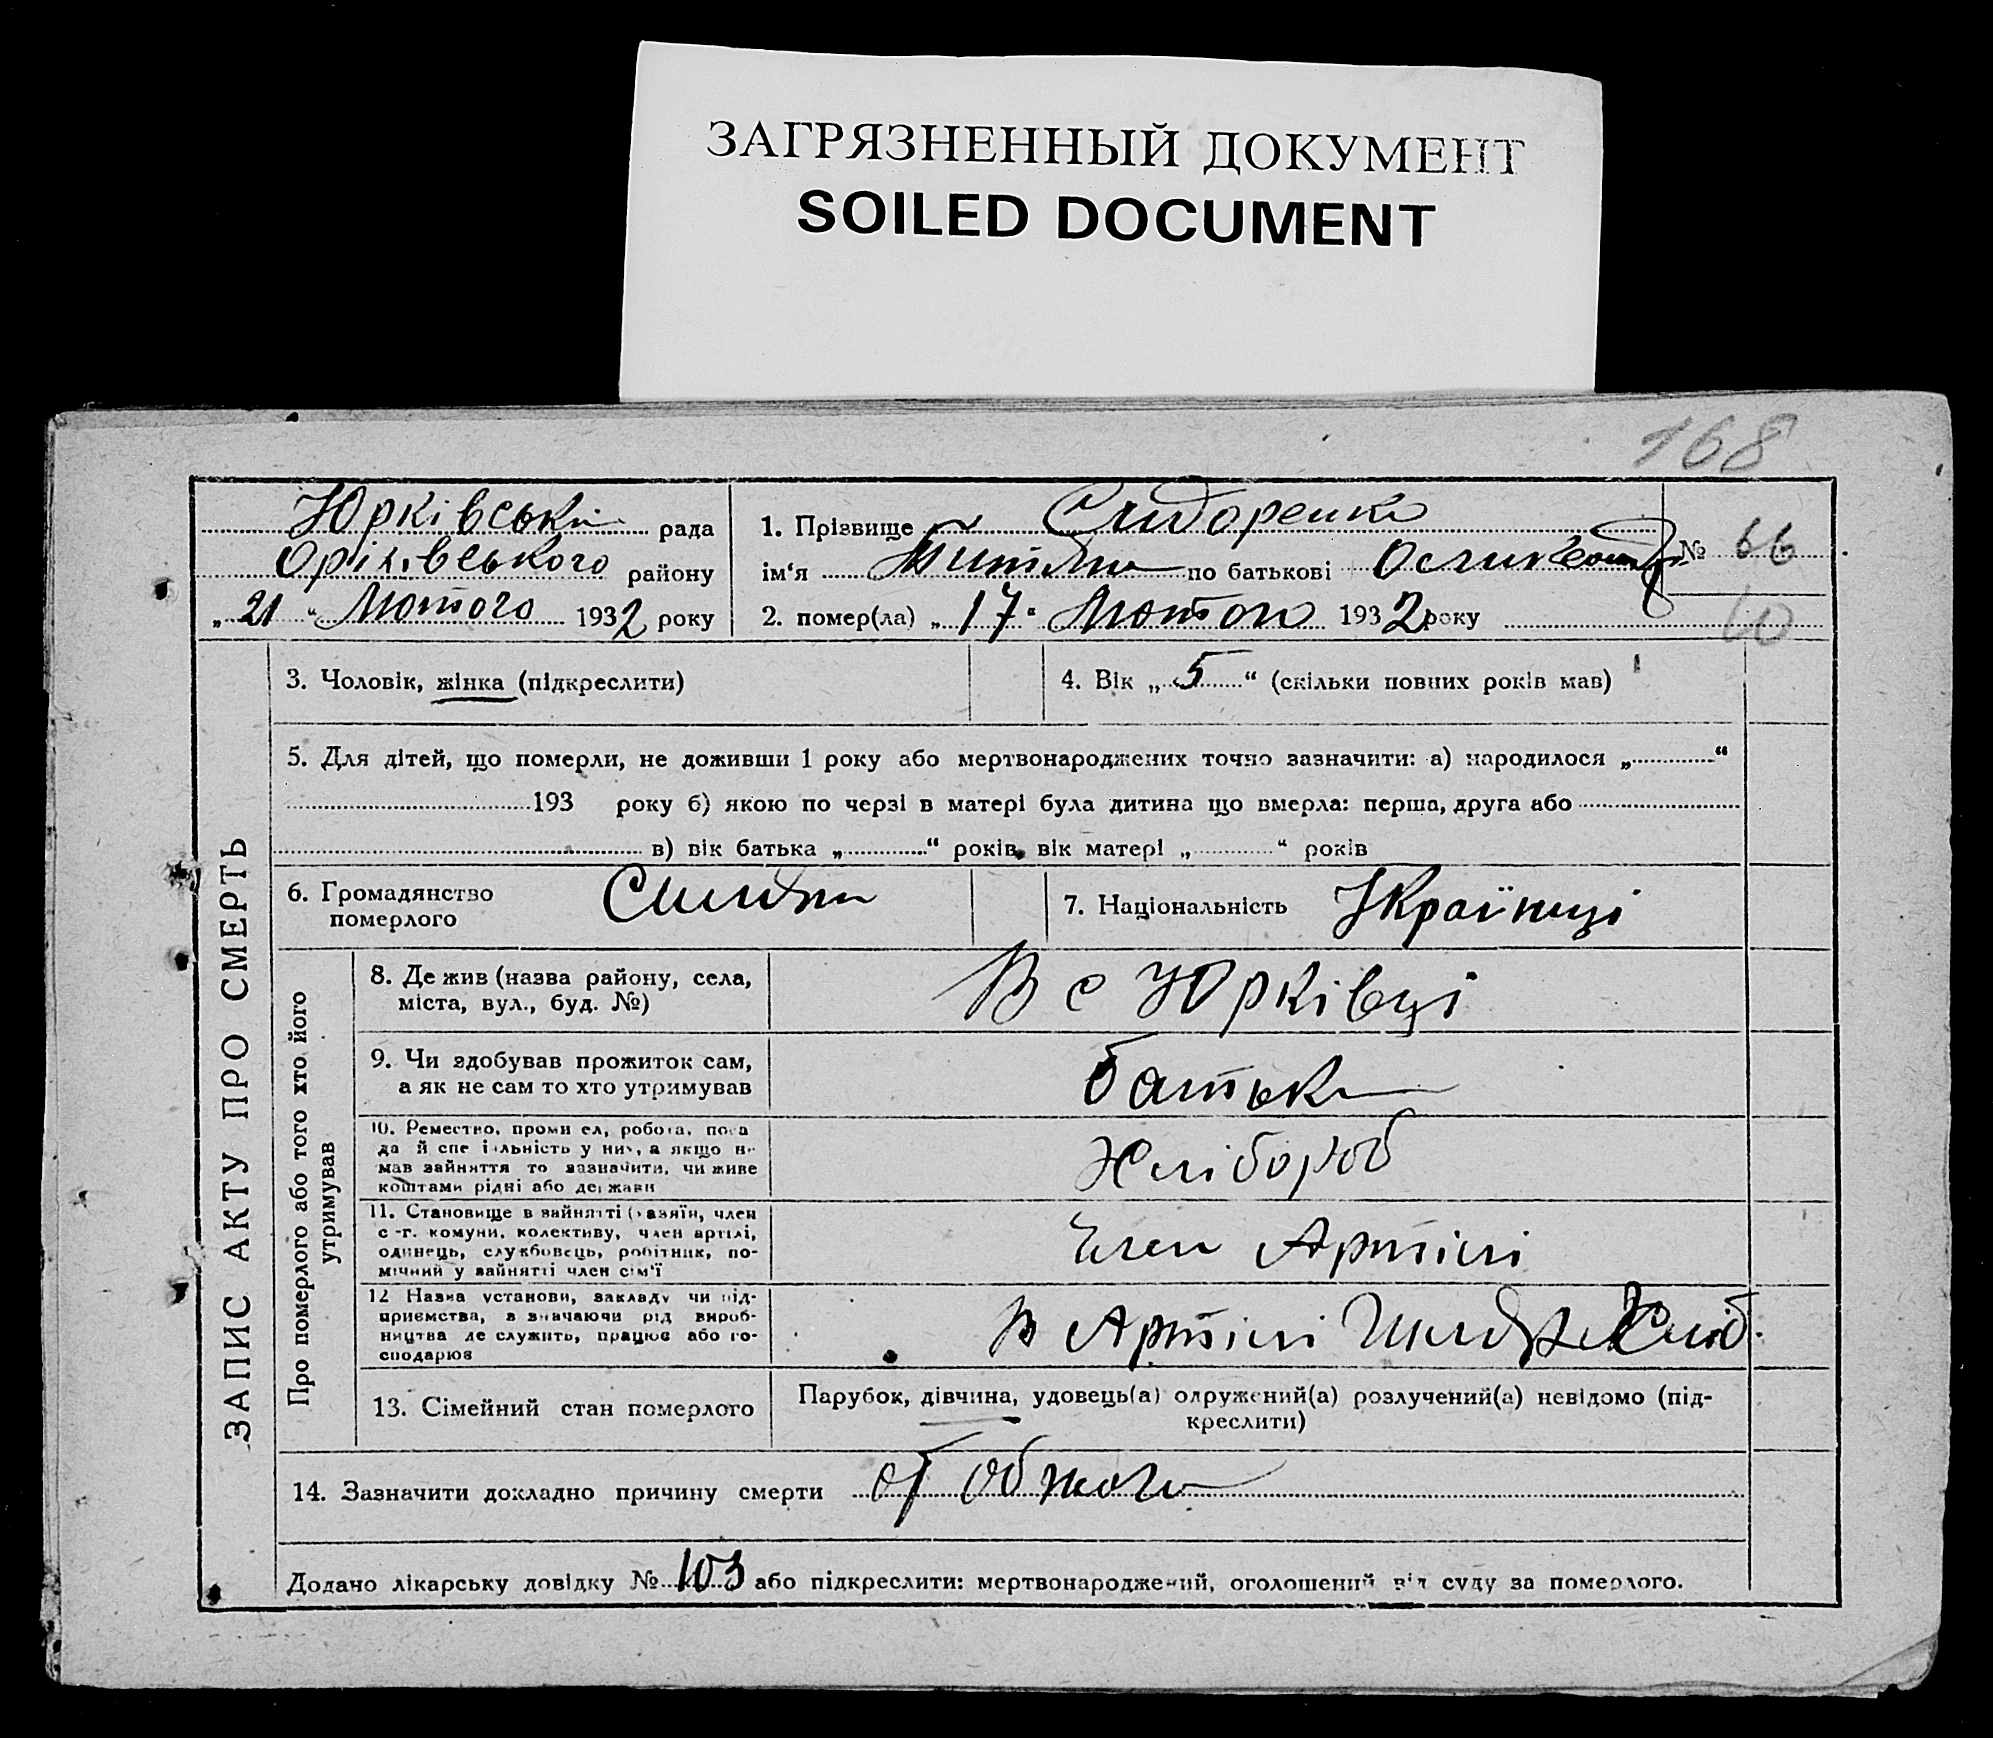 ЗАГРЯЗНЕННЫЙ ДОКУМЕНТ
SOILED DOCUMENT
168
Юрківська рада
Оріхівського району
„21“ Лютого 1932 року
1. Прізвище Сидоренко
ім‘я по батькові
№ 66
2. помер(ла) „17“ Лютого 1932 року
10
ЗАПИС АКТУ ПРО СМЕРТЬ
3. Чоловік, жінка (підкреслити)
4. Вік „5“ (скільки повних років мав)
5. Для дітей, що померли, не доживши 1 року або мертвонароджених точно зазначити: а) народилося „ “
193 року б) якою по черзі в матері була дитина що вмерла: перша, друга або
в) вік батька „ “ років, вік матері „ “ років
6. Громадянство
померлого
7. Національність Українці
Про померлого або того хто його
утримував
8. Де жив (назва району, села,
міста, вул., буд. №)
В с Юрківці
9. Чи здобував прожиток сам,
а як не сам то хто утримував
батько
10. Ремество, промисел, робота, поса
да й спеціальність у них, а якщо не
мав зайняття то зазначити, чи живе
коштами рідні або держави
Хлібороб
11. Становище в зайнятті (хазяїн, член
с.-г. комуни, колективу, член артілі,
одинець, службовець, робітник, по-
мічний у зайнятті член сім‘ї
Член Артілі
12 Назва установи, закладу чи під-
приємства, зазначаючи рід вироб-
ництва де служить, працює або го-
сподарює
В Артілі
13. Сімейний стан померлого
Парубок, дівчина, удовець(а) одружений(а) розлучений(а) невідомо (під-
креслити)
14. Зазначити докладно причину смерти от обжога
Додано лікарську довідку № 103 або підкреслити: мертвонароджений, оголошений від суду за померлого.